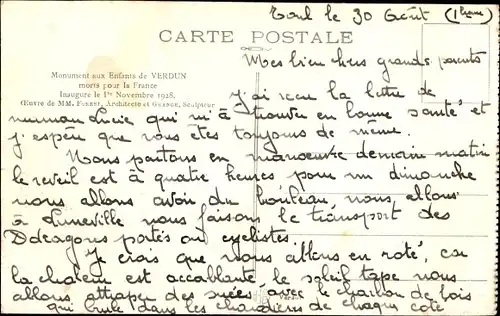 Toul le 30 Août (1 heure)
CARTE POSTALE
Monument aux Enfants de VERDUN
morts pour la France
Inauguré le 1er Novembre 1928.
Œuvre de MM. FOREST, Architecte et GRANGE, Sculpteur
Mes bien chers grands parents
J'ai reçu la lettre de
maman Lucie qui m'a trouvé en bonne santé et
j'espère que vous êtes toujours de même.
Nous partons en manœuvre demain matin
le reveil est à quatre heures pour un dimanche
nous allons avoir du bouleau, nous allons
à Luneville nous faisons le transport des
Ddragons portés ou cyclistes.
Je crois que nous allons en roté, car
la chaleur est accablante, le soleil tape nous
allons attraper des suées avec le charbon de bois
qui brule dans les chaudières de chaque coté